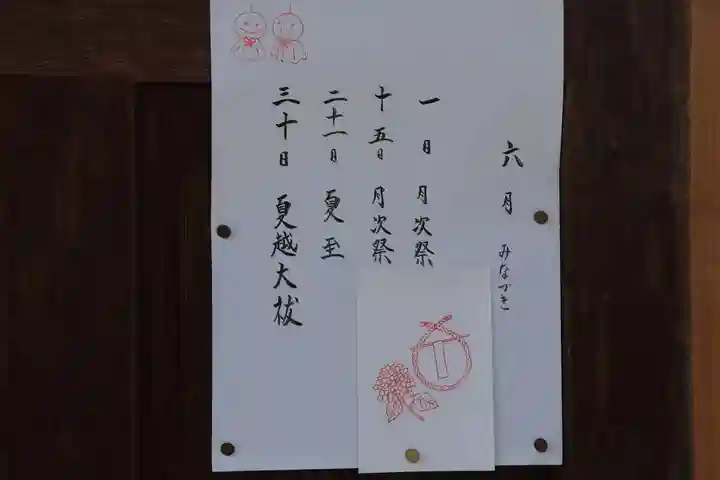 六月 みなづき
一日 月次祭
十五日 月次祭
二十一日 夏至
三十日 夏越大祓